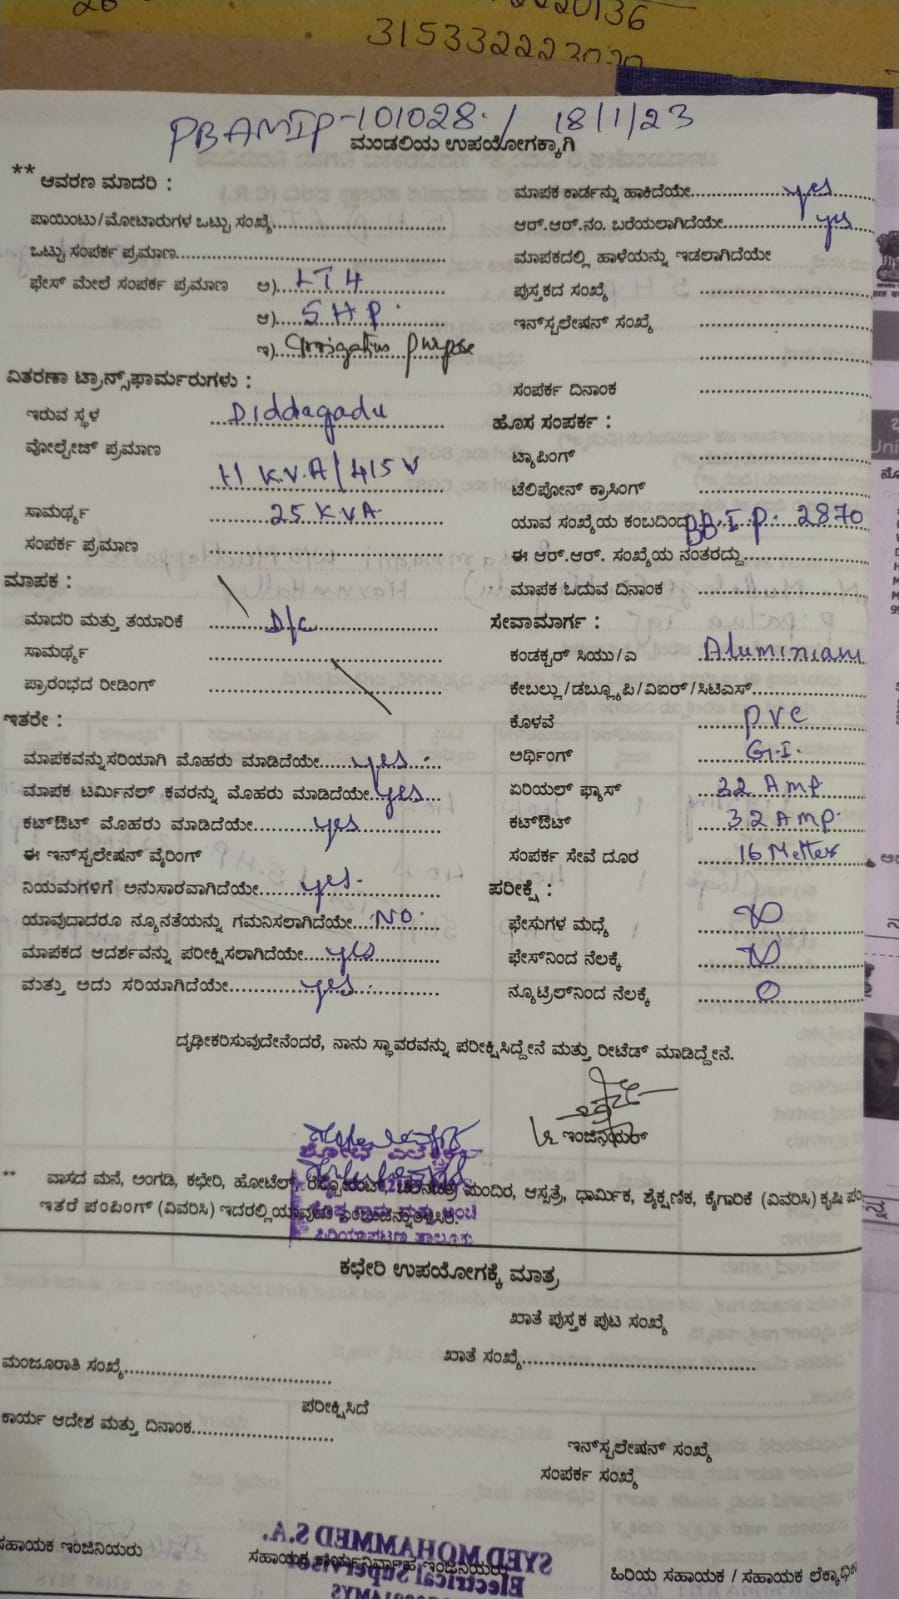 2220136
315332223020
PBAMIP-101028 / 18/1/23
ಮಂಡಲಿಯ ಉಪಯೋಗಕ್ಕಾಗಿ
** ಆವರಣ ಮಾದರಿ :
ಪಾಯಿಂಟು/ಮೋಟಾರುಗಳ ಒಟ್ಟು ಸಂಖ್ಯೆ
ಒಟ್ಟು ಸಂಪರ್ಕ ಪ್ರಮಾಣ
ಫೇಸ್ ಮೇಲೆ ಸಂಪರ್ಕ ಪ್ರಮಾಣ ಅ) LT 4
ಆ) 5 HP
ಇ) Irrigation purpose
ವಿತರಣಾ ಟ್ರಾನ್ಸ್‌ಫಾರ್ಮರುಗಳು :
ಇರುವ ಸ್ಥಳ Diddagadu
ವೋಲ್ಟೇಜ್ ಪ್ರಮಾಣ 11 K.V.A/415 V
ಸಾಮರ್ಥ್ಯ 25 KVA
ಸಂಪರ್ಕ ಪ್ರಮಾಣ
ಮಾಪಕ :
ಮಾದರಿ ಮತ್ತು ತಯಾರಿಕೆ D/C
ಸಾಮರ್ಥ್ಯ
ಪ್ರಾರಂಭದ ರೀಡಿಂಗ್
ಇತರೇ :
ಮಾಪಕವನ್ನು ಸರಿಯಾಗಿ ಮೊಹರು ಮಾಡಿದೆಯೇ yes
ಮಾಪಕ ಟರ್ಮಿನಲ್ ಕವರನ್ನು ಮೊಹರು ಮಾಡಿದೆಯೇ yes
ಕಟ್‌ಔಟ್ ಮೊಹರು ಮಾಡಿದೆಯೇ yes
ಈ ಇನ್‌ಸ್ಟಲೇಷನ್ ವೈರಿಂಗ್
ನಿಯಮಗಳಿಗೆ ಅನುಸಾರವಾಗಿದೆಯೇ yes
ಯಾವುದಾದರೂ ನ್ಯೂನತೆಯನ್ನು ಗಮನಿಸಲಾಗಿದೆಯೇ NO
ಮಾಪಕದ ಆದರ್ಶವನ್ನು ಪರೀಕ್ಷಿಸಲಾಗಿದೆಯೇ yes
ಮತ್ತು ಅದು ಸರಿಯಾಗಿದೆಯೇ yes
ಮಾಪಕ ಕಾರ್ಡನ್ನು ಹಾಕಿದೆಯೇ yes
ಆರ್.ಆರ್.ನಂ. ಬರೆಯಲಾಗಿದೆಯೇ yes
ಮಾಪಕದಲ್ಲಿ ಹಾಳೆಯನ್ನು ಇಡಲಾಗಿದೆಯೇ
ಪುಸ್ತಕದ ಸಂಖ್ಯೆ
ಇನ್‌ಸ್ಟಲೇಷನ್ ಸಂಖ್ಯೆ
ಸಂಪರ್ಕ ದಿನಾಂಕ
ಹೊಸ ಸಂಪರ್ಕ :
ಟ್ಯಾಪಿಂಗ್
ಟೆಲಿಫೋನ್ ಕ್ರಾಸಿಂಗ್
ಯಾವ ಸಂಖ್ಯೆಯ ಕಂಬದಿಂದ I.P. 2870
ಈ ಆರ್.ಆರ್. ಸಂಖ್ಯೆಯ ನಂತರದ್ದು
ಮಾಪಕ ಓದುವ ದಿನಾಂಕ
ಸೇವಾಮಾರ್ಗ :
ಕಂಡಕ್ಟರ್ ಸಿಯು/ಎ Aluminiam
ಕೇಬಲ್ಲು/ಡಬ್ಲ್ಯೂಪಿ/ವಿಐಆರ್/ಸಿಟಿಎಸ್
ಕೊಳವೆ PVC
ಅರ್ಥಿಂಗ್ G.I.
ಏರಿಯಲ್ ಫ್ಯೂಸ್ 32 Amp
ಕಟ್‌ಔಟ್ 32 Amp
ಸಂಪರ್ಕ ಸೇವೆ ದೂರ 16 Metter
ಪರೀಕ್ಷೆ :
ಫೇಸುಗಳ ಮಧ್ಯೆ
ಫೇಸ್‌ನಿಂದ ನೆಲಕ್ಕೆ
ನ್ಯೂಟ್ರಲ್‌ನಿಂದ ನೆಲಕ್ಕೆ 0
ದೃಢೀಕರಿಸುವುದೇನೆಂದರೆ, ನಾನು ಸ್ಥಾವರವನ್ನು ಪರೀಕ್ಷಿಸಿದ್ದೇನೆ ಮತ್ತು ರೀಟೆಡ್ ಮಾಡಿದ್ದೇನೆ.
ಇಂಜಿನಿಯರ್
** ವಾಸದ ಮನೆ, ಅಂಗಡಿ, ಕಛೇರಿ, ಹೋಟೆಲ್, ಮಂದಿರ, ಆಸ್ಪತ್ರೆ, ಧಾರ್ಮಿಕ, ಶೈಕ್ಷಣಿಕ, ಕೈಗಾರಿಕೆ (ವಿವರಿಸಿ) ಕೃಷಿ
ಇತರೆ ಪಂಪಿಂಗ್ (ವಿವರಿಸಿ)
ಪಿರಿಯಾಪಟ್ಟಣ ತಾಲ್ಲೂಕು
ಕಛೇರಿ ಉಪಯೋಗಕ್ಕೆ ಮಾತ್ರ
ಖಾತೆ ಪುಸ್ತಕ ಪುಟ ಸಂಖ್ಯೆ
ಮಂಜೂರಾತಿ ಸಂಖ್ಯೆ
ಖಾತೆ ಸಂಖ್ಯೆ
ಪರೀಕ್ಷಿಸಿದೆ
ಕಾರ್ಯ ಆದೇಶ ಮತ್ತು ದಿನಾಂಕ
ಇನ್‌ಸ್ಟಲೇಷನ್ ಸಂಖ್ಯೆ
ಸಂಪರ್ಕ ಸಂಖ್ಯೆ
SYED MOHAMMED S.A.
Electrical Supervisor
ಸಹಾಯಕ ಇಂಜಿನಿಯರು
ಸಹಾಯಕ ಕಾರ್ಯನಿರ್ವಾಹಕ ಇಂಜಿನಿಯರು
ಹಿರಿಯ ಸಹಾಯಕ / ಸಹಾಯಕ